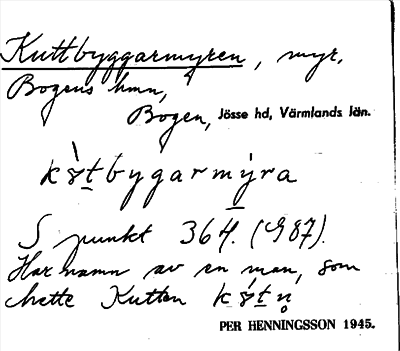 Kuttbyggarmyren, myr,
Bogens hmn,
Bogen, Jösse hd, Värmlands län.
S punkt 364. (987).
Har namn av en man, som
hette Kutten
PER HENNINGSSON 1945.